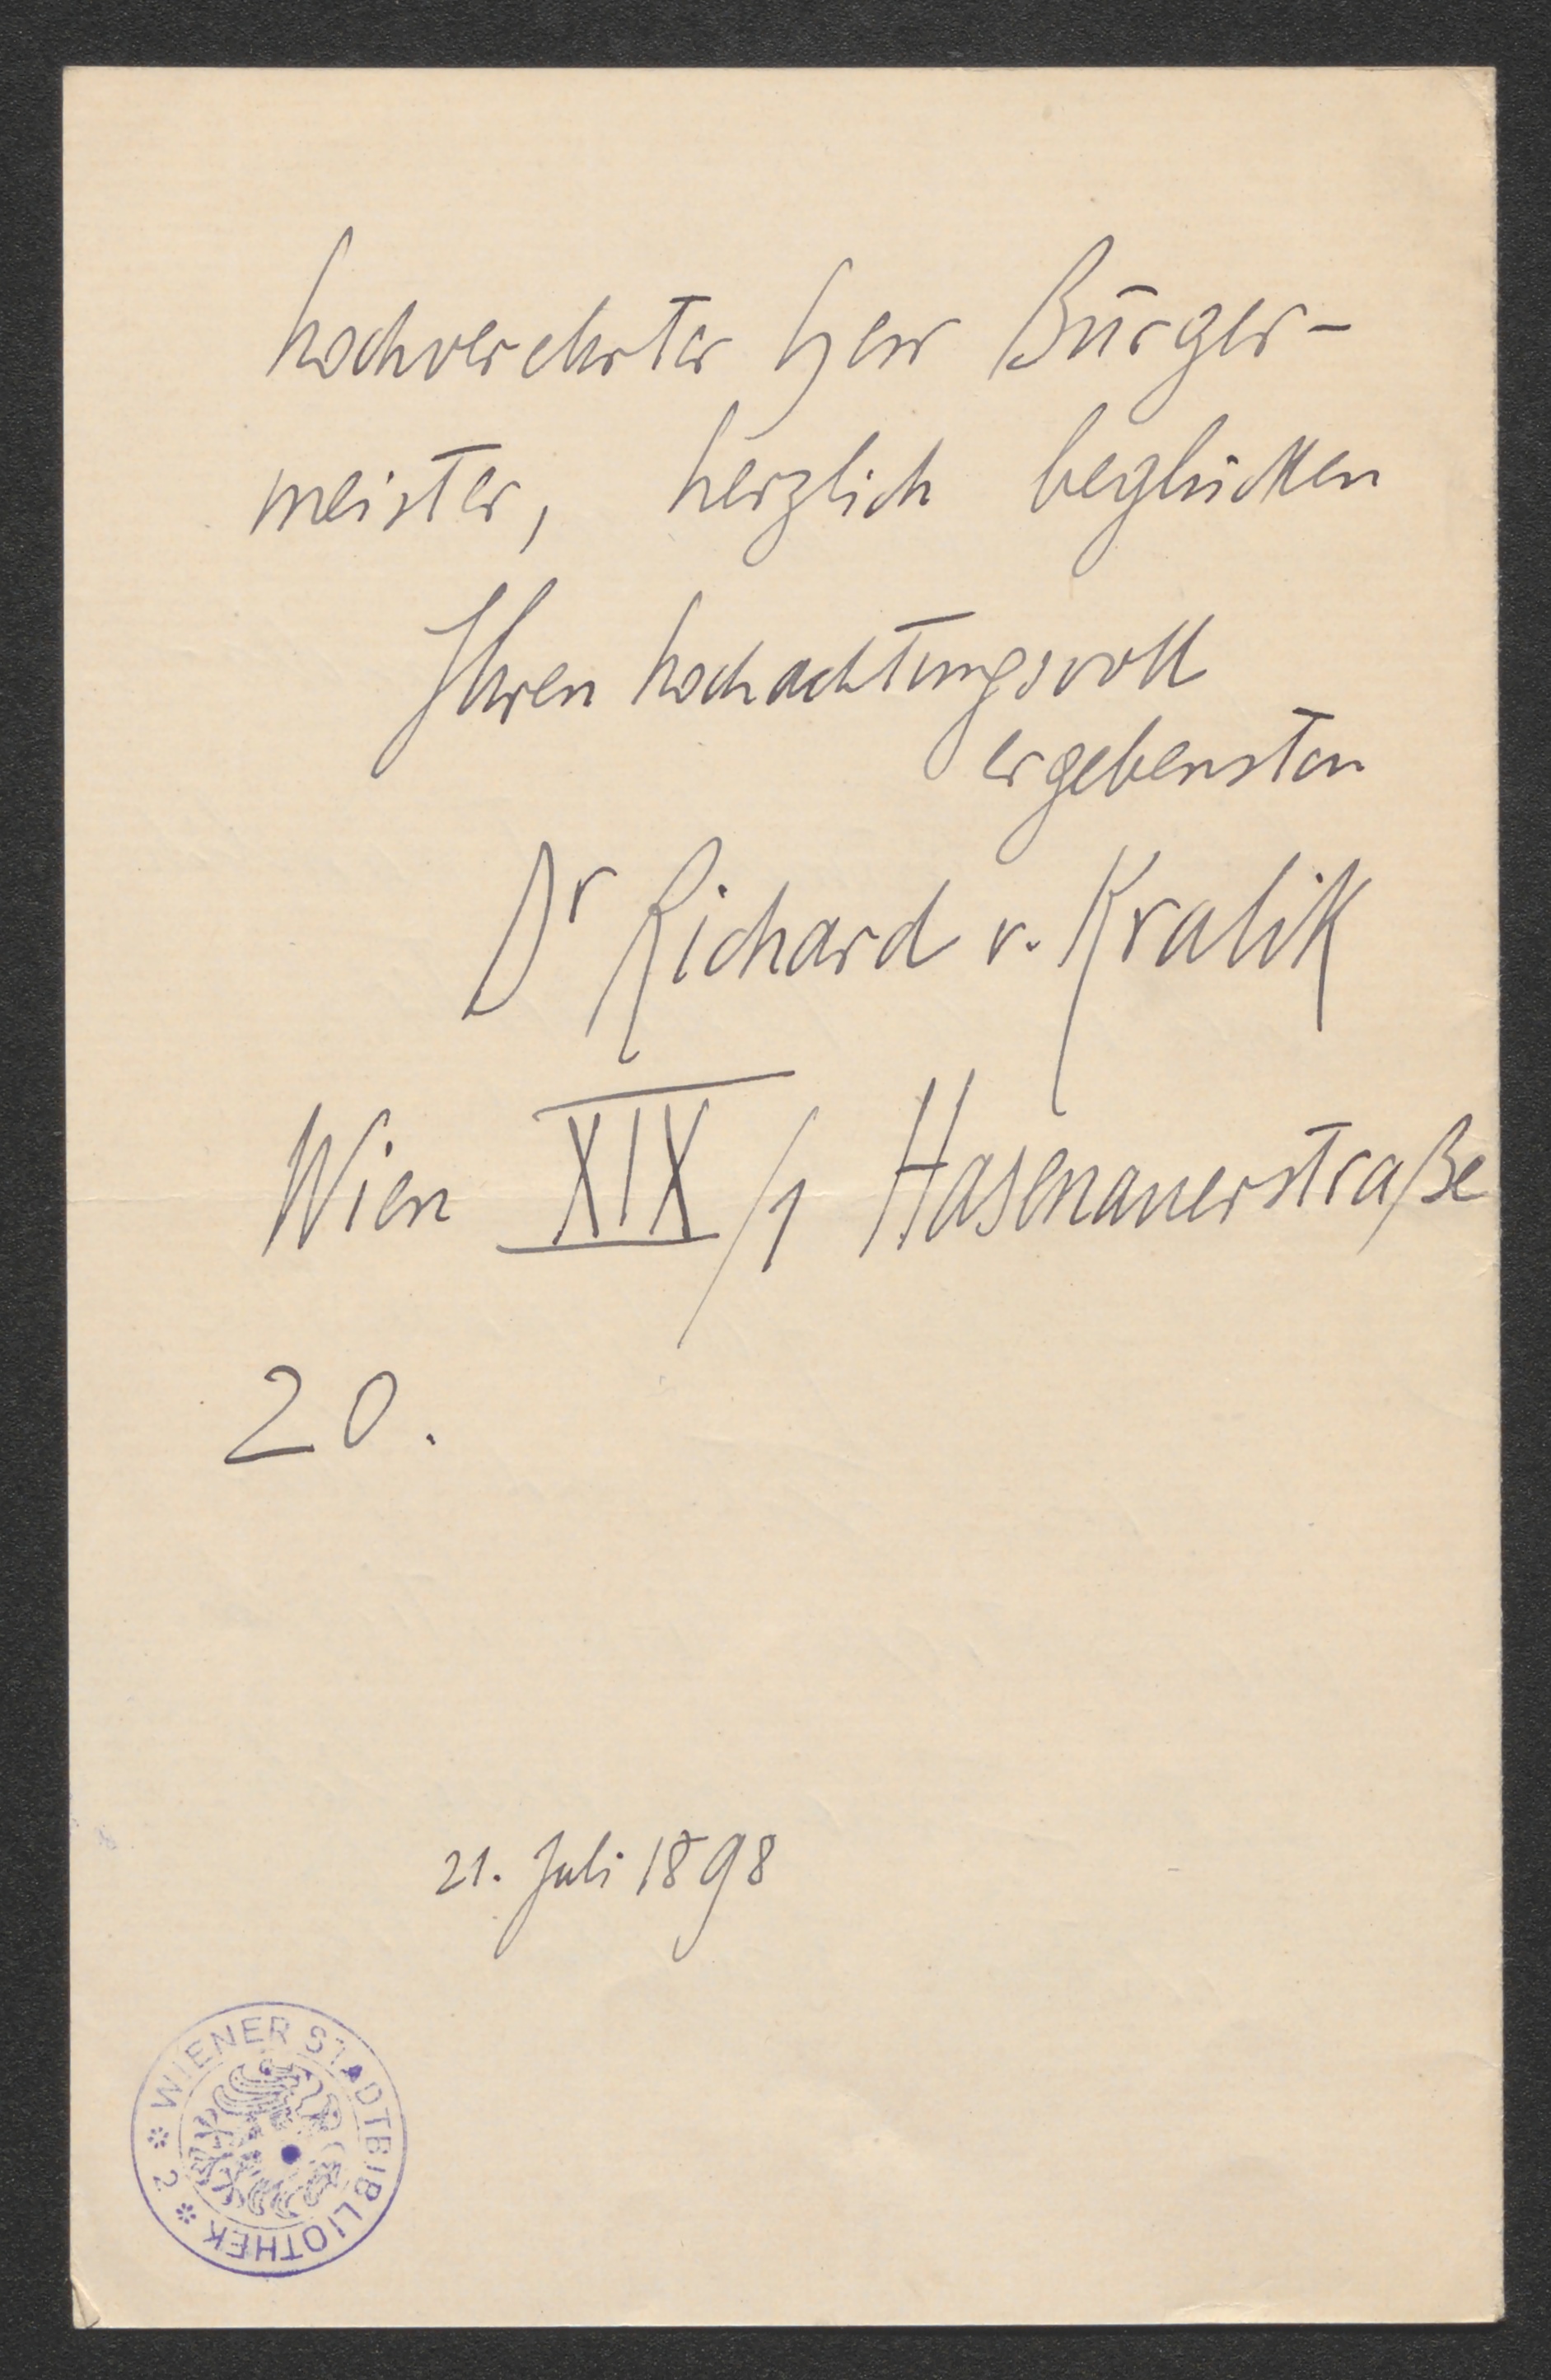 hochverehrter Herr Bürger-
meister, herzlich beglücken
Ihren hochachtungsvoll
ergebensten
Dr Richard v. Kralik
Wien XIX/1 Hasenauerstraße
20.
21. Juli 1898
* WIENER STADTBIBLIOTHEK * 2